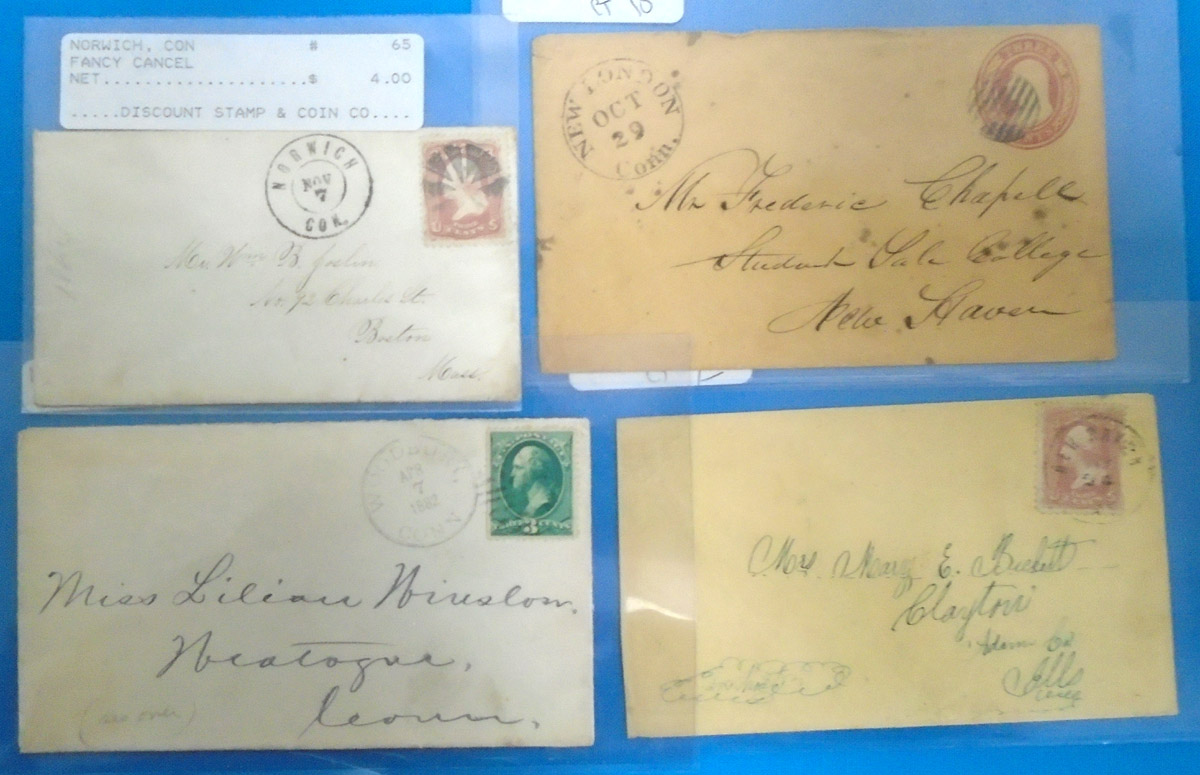 NORWICH, CON # 65
FANCY CANCEL
NET....................$ 4.00
.....DISCOUNT STAMP & COIN CO....
NORWICH
NOV
7
CON.
U S
CENTS
Mr. Wm B. Joslin
No. 72 Charles St.
Boston
Mass.
NEW LONDON
OCT
29
Conn.
THREE
Mr Frederic Chapell
Student Yale College
New Haven
WOODBURY
APR
7
1882
CONN
3 CENTS
Miss Lilian Winslow,
Weatogue,
Conn.
(see over)
24
Mrs. Mary E.
Clayton
Adams Co
Ills